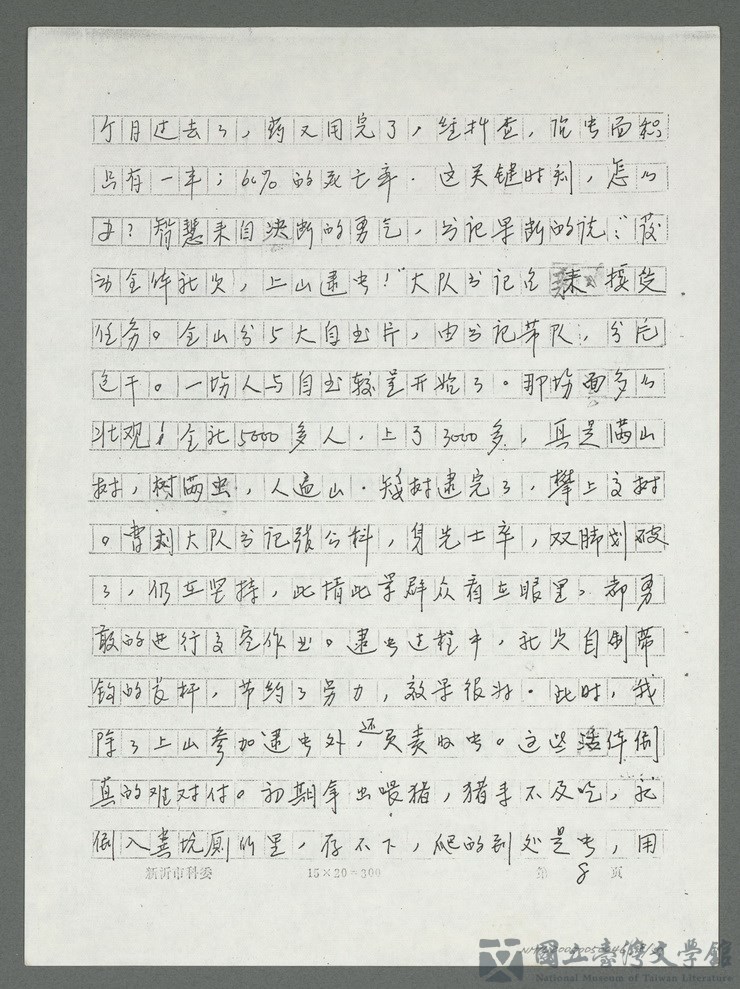 个月过去了，药又用完了，经抽查，治虫面积
只有一半；60%的死亡率．这关键时刻，怎么
办？智慧来自决断的勇气，书记果断的说：“发
动全体社员，上山逮虫！”大队书记 接受
任务。全山分5大自 片，由书记带队，分片
包干。一场人与自 较量开始了。那场面多么
壮观！全社5000多人，上了3000多，真是满山
树，树满虫，人遍山．矮树逮完了，攀上高树
。曹刘大队书记张公科，身先士卒，双脚划破
了，仍在坚持，此情此景群众看在眼里，都勇
敢的进行高空作业。逮虫过程中，社员自制带
钩的 杆，节约了劳力，效果很好．此时，我
除了上山参加逮虫外，还负责收虫。这些活体倒
真的难对付。初期拿出喂猪，猪来不及吃，就
倒入粪坑厕所里，存不下，爬的到处是虫，用
新沂市科委 15×20=300 第8页
國立臺灣文學館
National Museum of Taiwan Literature